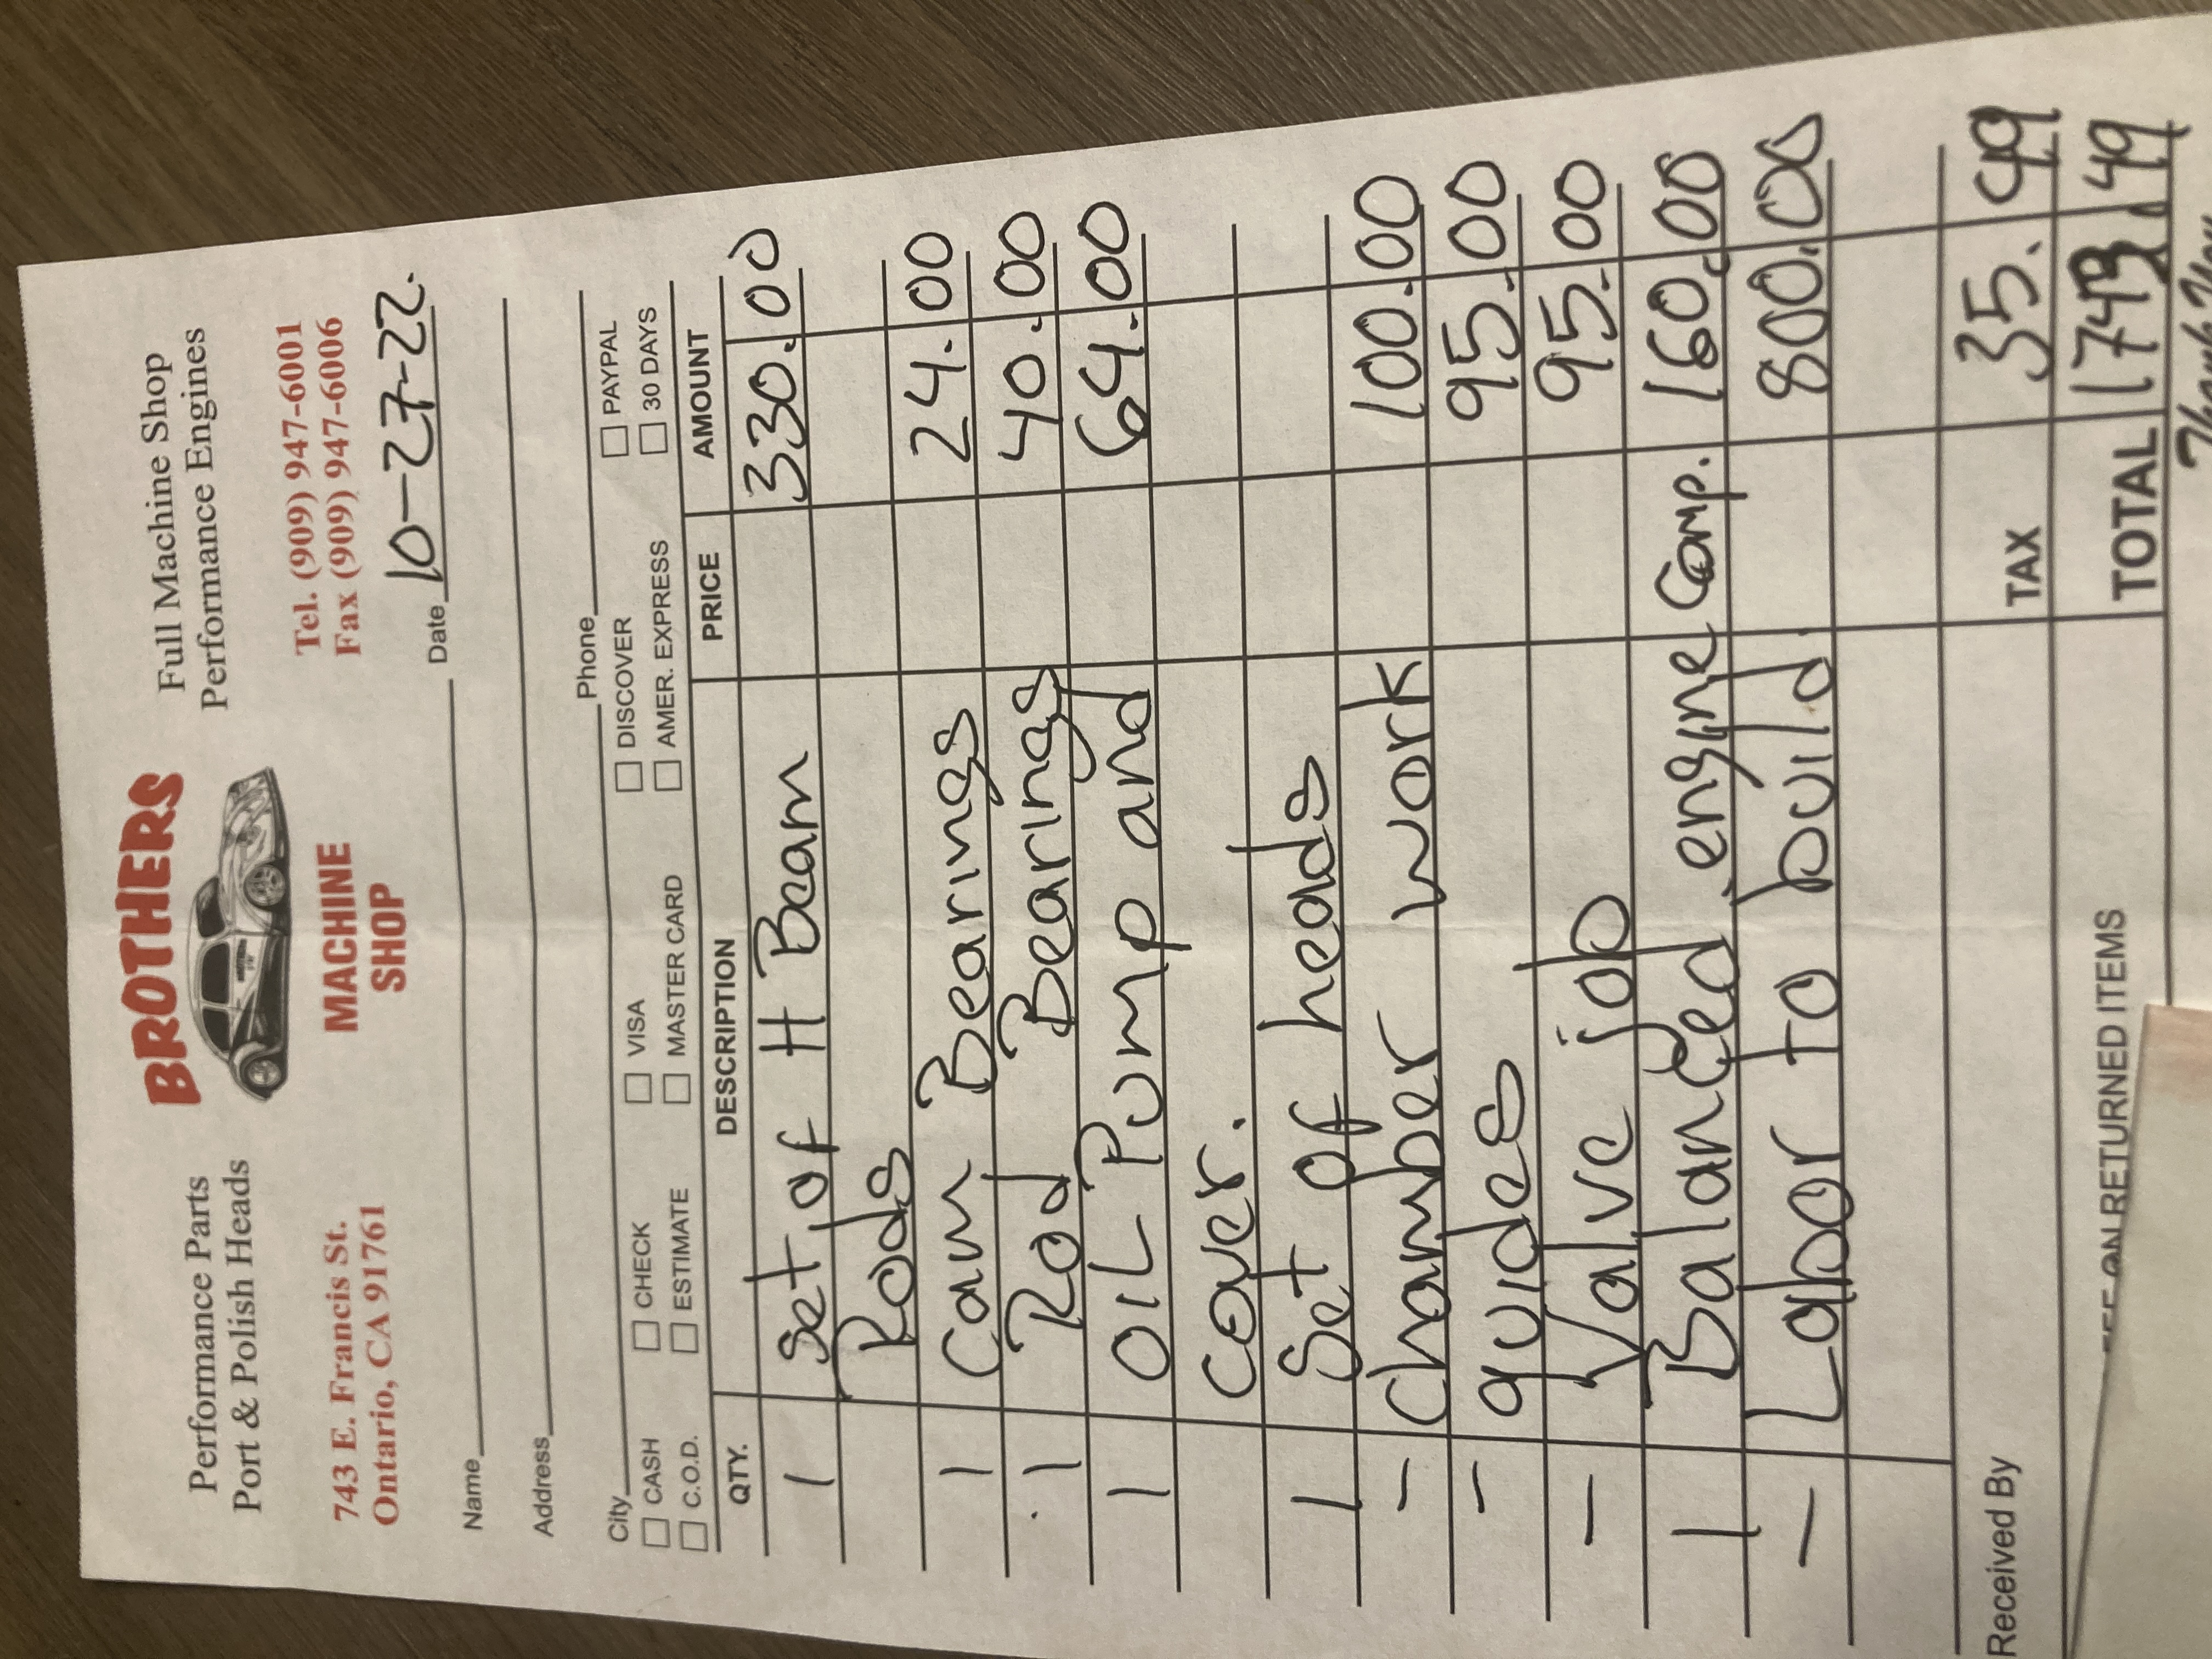 Performance Parts
Port & Polish Heads
BROTHERS
MACHINE
SHOP
Full Machine Shop
Performance Engines
743 E. Francis St.
Ontario, CA 91761
Tel. (909) 947-6001
Fax (909) 947-6006
Name Date 10-27-22.
Address
City Phone
☐ CASH ☐ CHECK ☐ VISA ☐ DISCOVER ☐ PAYPAL
☐ C.O.D. ☐ ESTIMATE ☐ MASTER CARD ☐ AMER. EXPRESS ☐ 30 DAYS
QTY. DESCRIPTION PRICE AMOUNT
1 set of H Beam 330.00
Rods
1 Cam Bearings 24.00
1 Rod Bearings 40.00
1 OIL Pump and 64.00
cover.
1 Set of heads
- Chamber work 100.00
- guides 95.00
- Valve job 95.00
1 Balanced engine Comp. 160.00
- Labor to build. 800.00
Received By TAX 35.49
FEE ON RETURNED ITEMS TOTAL 1743.49
Thank You